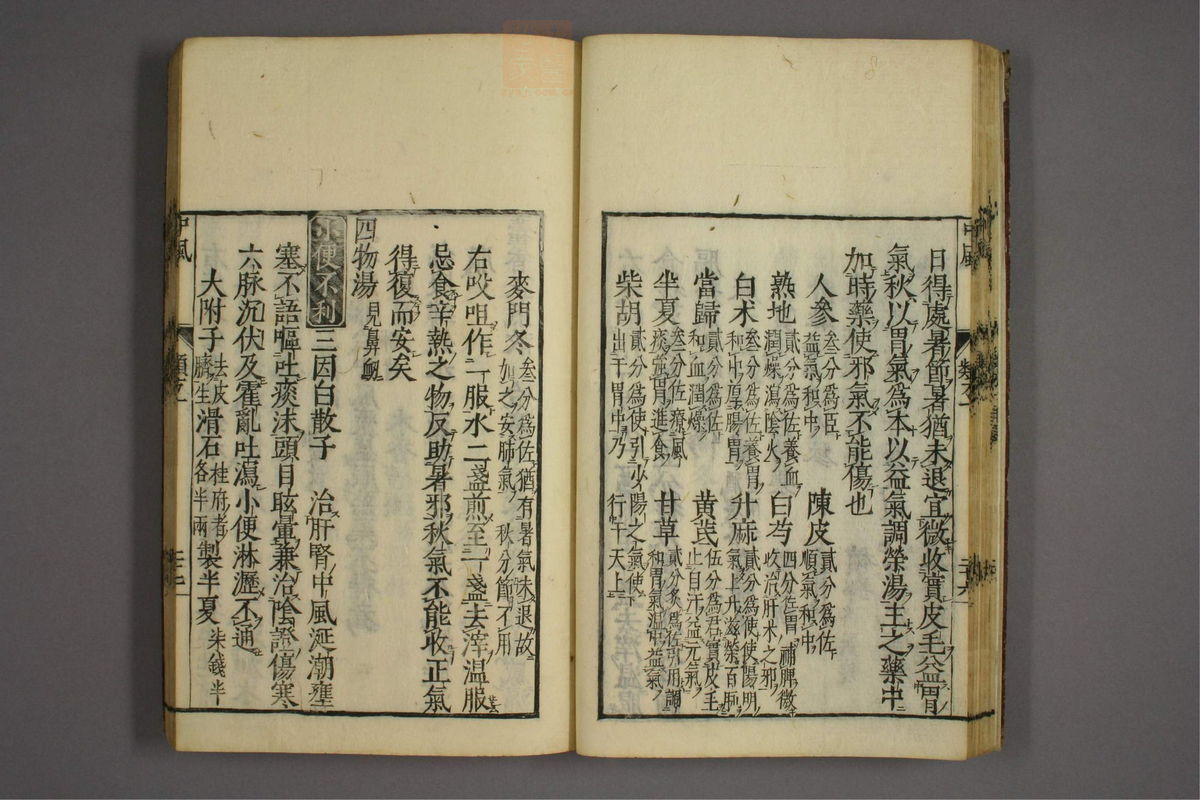 日得處暑節暑猶未退宜微收實皮毛益胃
氣秋以胃氣爲本以益氣調榮湯主之藥中
加時藥使邪氣不能傷也
人參 叄分爲臣益氣和中 陳皮 貳分爲佐順氣和中
熟地 貳分爲佐養血潤燥瀉陰火 白芍 四分佐胃補脾微收治肝木之邪
白朮 貳分爲佐養胃和中厚腸胃 升麻 貳分爲使使陽明氣上升滋榮百脈
當歸 貳分爲佐和血潤燥 黄芪 伍分爲君實皮毛止自汗益元氣
半夏 叄分佐療風痰強胃進食 甘草 貳分炙爲佐引用調和胃氣温中益氣
柴胡 貳分爲使引少陽之氣使出于胃中乃行于天上
麥門冬 叄分爲佐猶有暑氣未退故加之安肺氣秋分節不用
右㕮咀作一服水二盞煎至一盞去滓温服
忌食辛熱之物反助暑邪秋氣不能收正氣
得復而安矣
四物湯 見鼻衂
小便不利 三因白散子 治肝腎中風涎潮壅
塞不語嘔吐痰沫頭目眩暈兼治陰證傷寒
六脉沉伏及霍亂吐瀉小便淋瀝不通
大附子 去皮臍生 滑石 桂府者各半兩 製半夏 柒錢半
中風